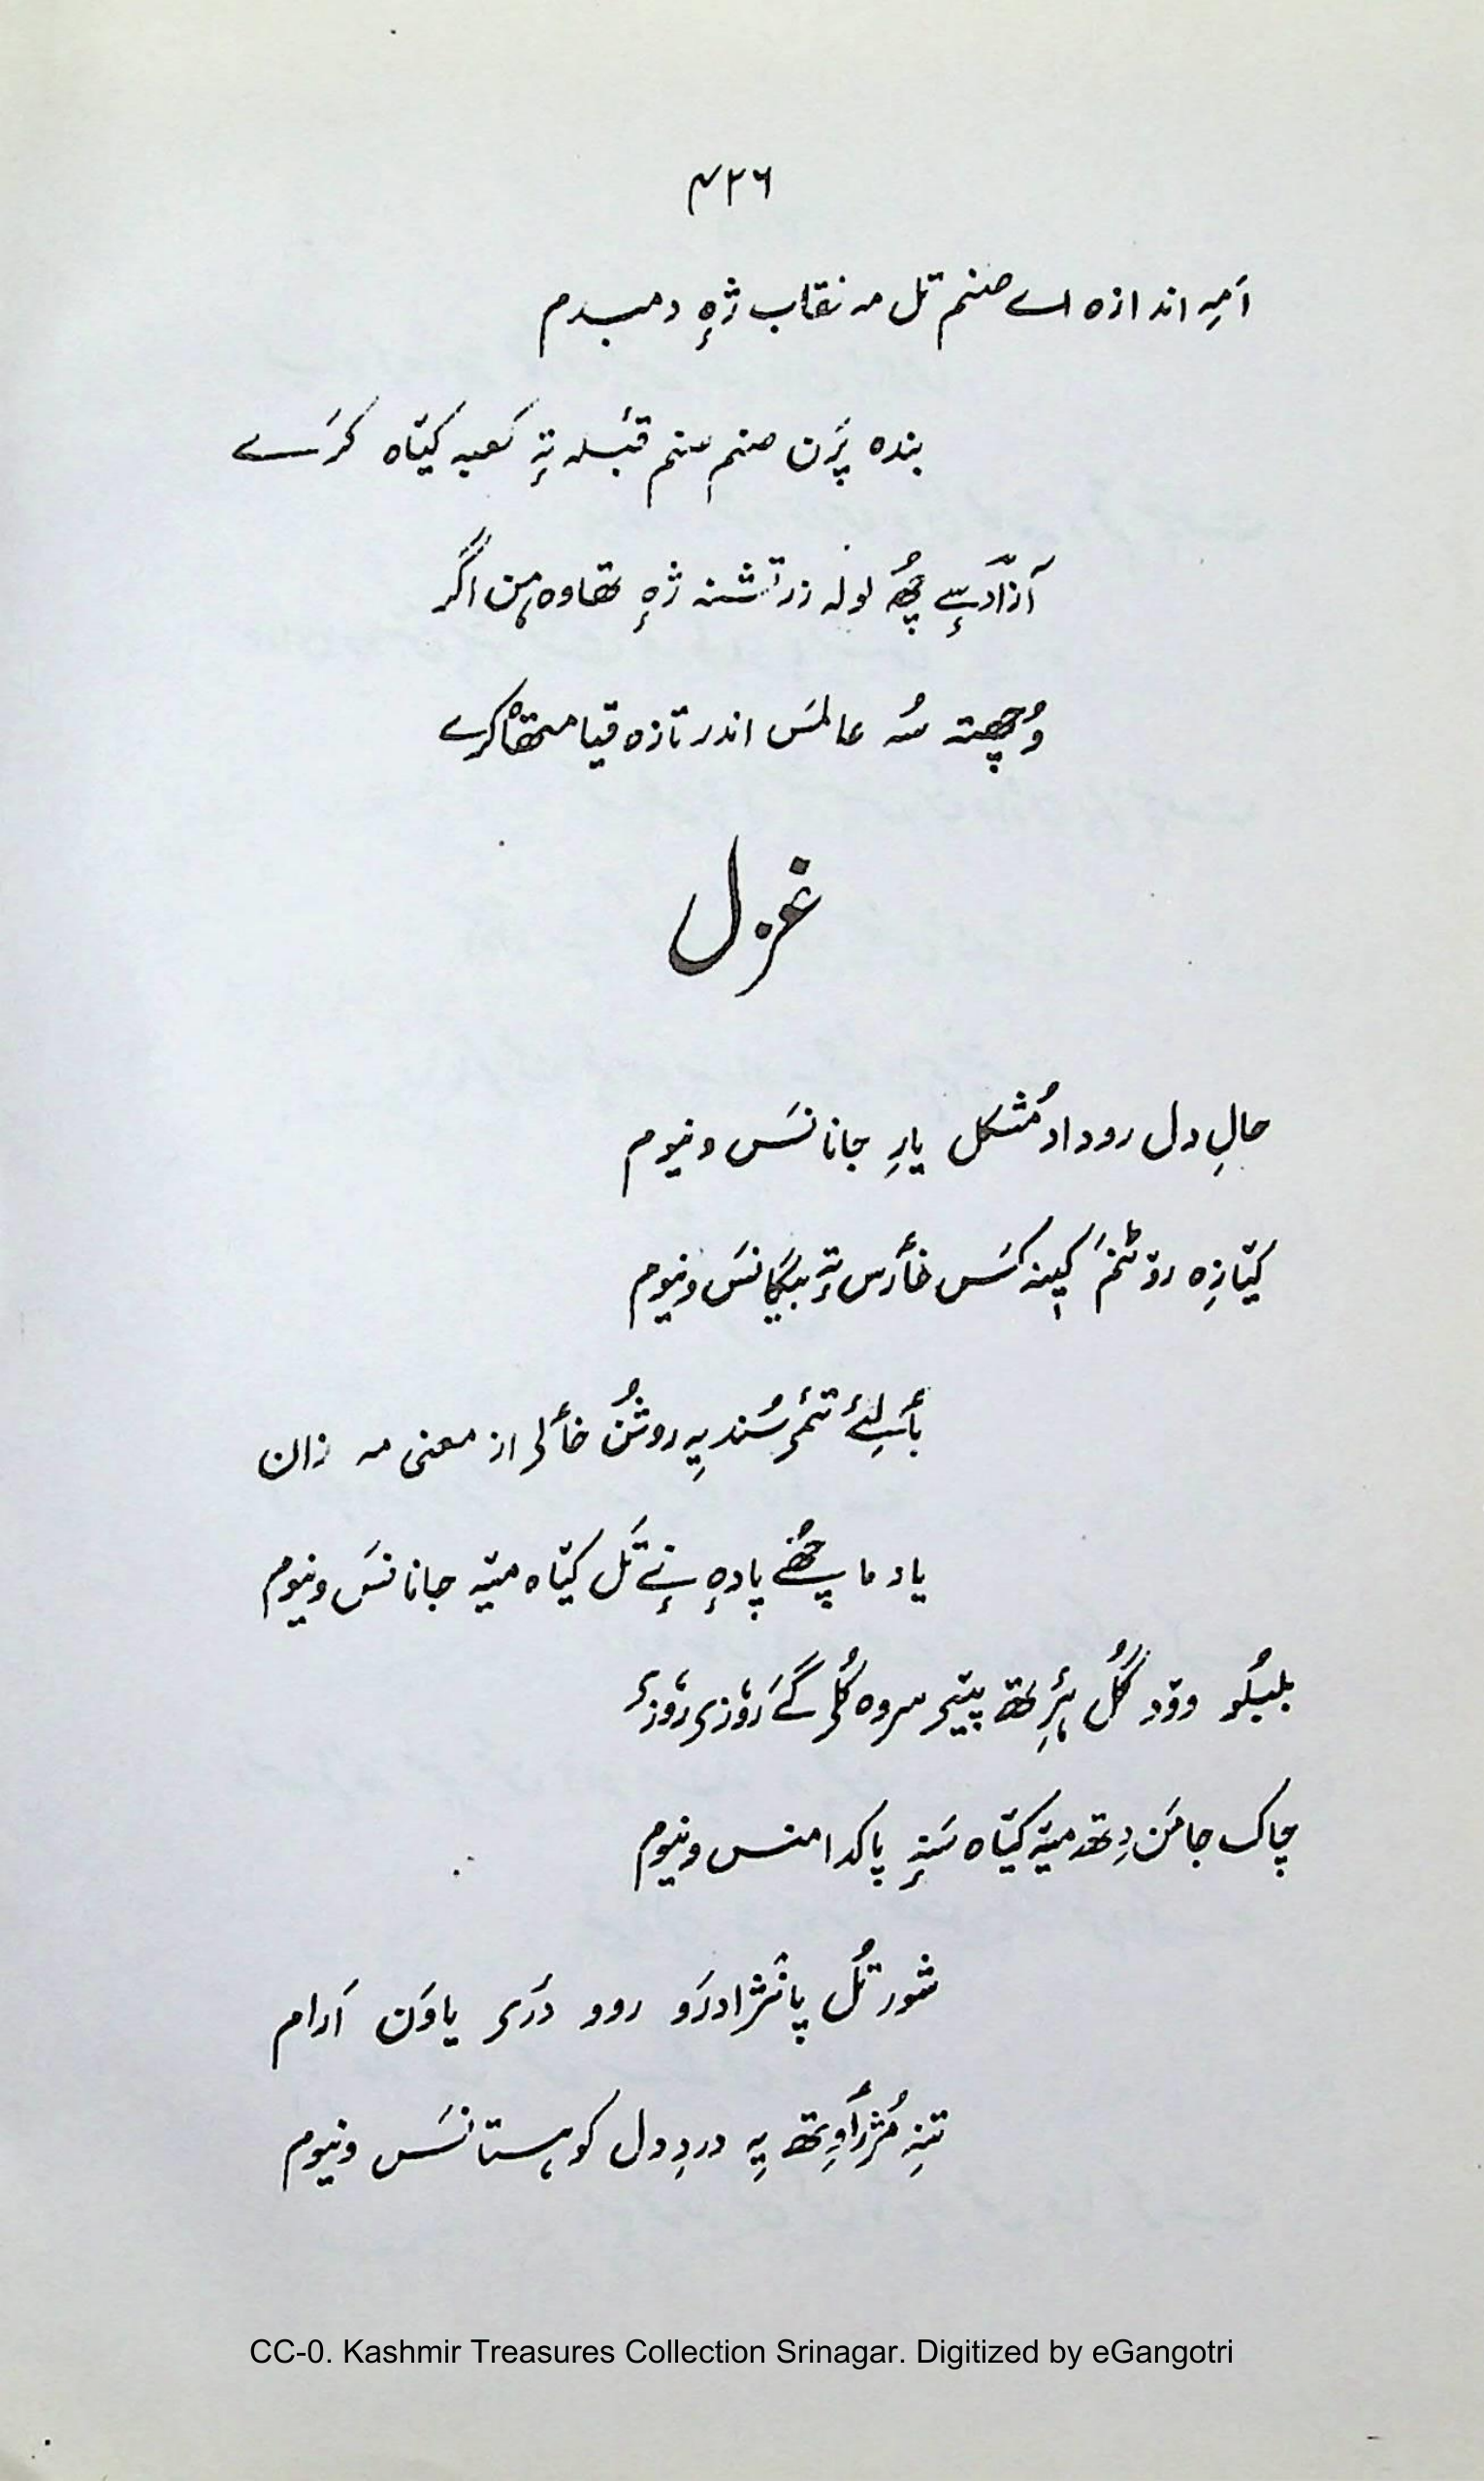 ۴۲۶
اَمہِ اندازہ اے صنم تل مہ نقاب ژہٕ دمبدم
بندہ پَرن صنم صنم قبلہ تہٕ کعبہ کیّاہ کرَے
آزاد سٕے چھُ لولہ زر تشنہ ژہٕ تھاوہ ہن اگر
وُچھتہ سُہ عالمَس اندر تازہ قیامتھاہ کرے
غزل
حالِ دل روداد مُشکل یارِ جانانَس ونیوم
کیّازِہ روٚٹنمَ کپینہ کَس خأرس تہٕ بیگانَس ونیوم
بأسِلۍ تٔمۍ سُند یہِ روشُن خألۍ از معنی مہ زان
یاد ما چھُے پادہٕ نٕے تَل کیّاہ میّہ جانانَس ونیوم
بلبُلو ووٚد گُل ہٮ۪رِتھ پیٚتۍ سروہ کُلۍ گے رٔوزۍ رٔوزۍ
چاک جامَن دِتھ میّہ کیّاہ سَنہٕ پاکدامنس ونیوم
شور تُل پانٔژادرَو روو دٔرۍ یاوَن آرام
تنہِ مُژرٲوِتھ یہِ دردِ دل کوہستانَس ونیوم
CC-0. Kashmir Treasures Collection Srinagar. Digitized by eGangotri